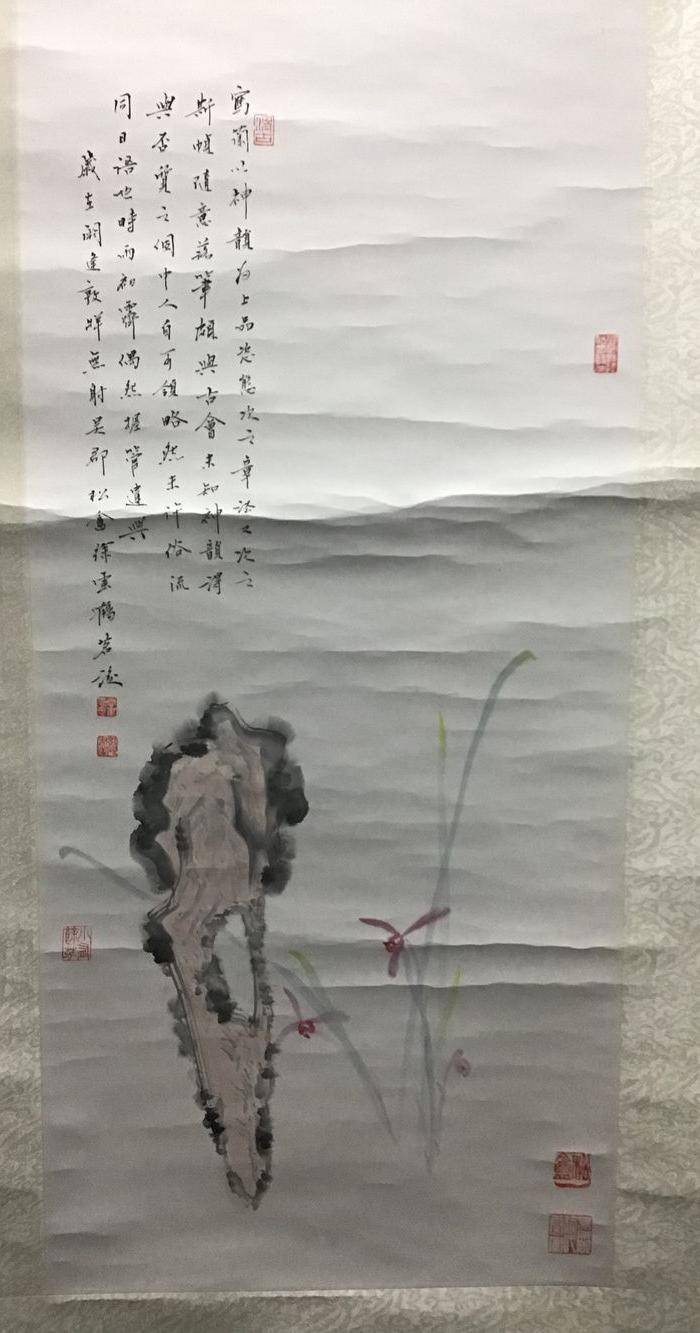 寫蘭以神韻為上品姿態次之章法又次之
斯幀隨意落筆頗與古會未知神韻得
與否質之個中人自可領略然未許俗流
同日語也時雨初霽偶然握管遣興
歲在閼逢敦牂無射吳郡松盦徐雲鶴若識